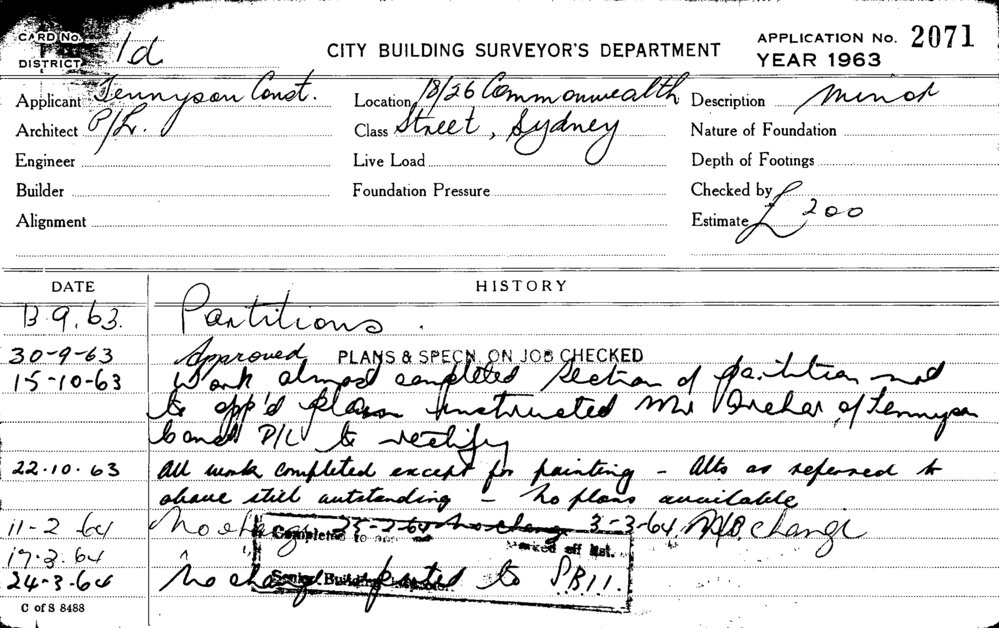 CARD No.
DISTRICT 1d
CITY BUILDING SURVEYOR'S DEPARTMENT
APPLICATION No. 2071
YEAR 1963
Applicant Tennyson Const.
Location 18/26 Commonwealth
Description Minor
Architect P/L.
Class Street, Sydney
Nature of Foundation
Engineer
Live Load
Depth of Footings
Builder
Foundation Pressure
Checked by
Alignment
Estimate £ 200
DATE
HISTORY
13.9.63. Partitions.
30-9-63 Approved PLANS & SPECN. ON JOB CHECKED
15-10-63 Work almost completed section of partition not
to app'd plan instructed Mr of Tennyson
Const P/L to rectify
22.10.63 All work completed except for painting - Alts as referred to
above still outstanding - No plans available
11-2-64 No change 25-2-64 No change 3-3-64. No change
17.3.64
24-3-64 No change posted to SB11.
Completed to
Marked off list.
Senior Building
C of S 8488